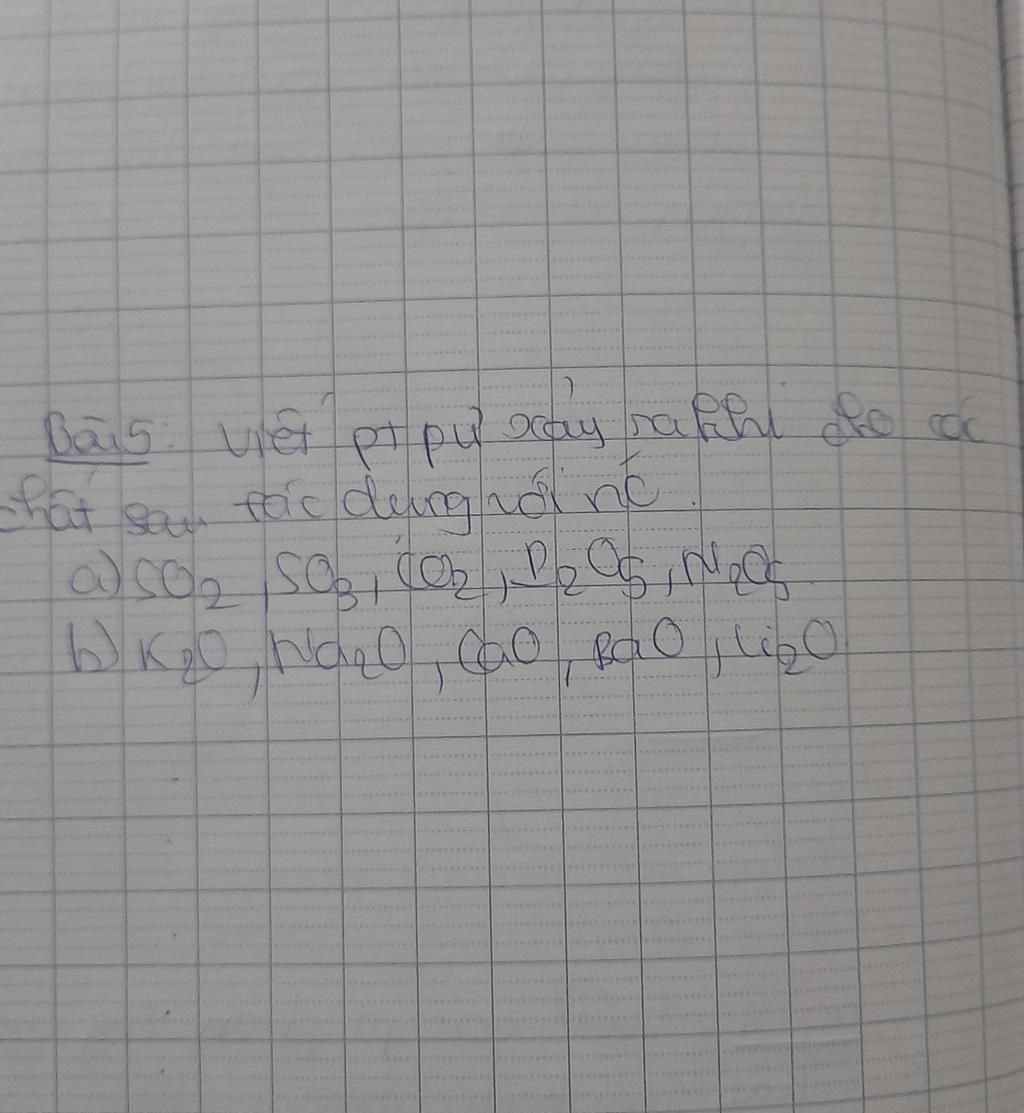 Bài 5: Viết pt pứ xảy ra khi cho các
chất sau tác dụng với nc.
a) SO2, SO3, CO2, P2O5, N2O5
b) K2O, Na2O, CaO, BaO, Li2O